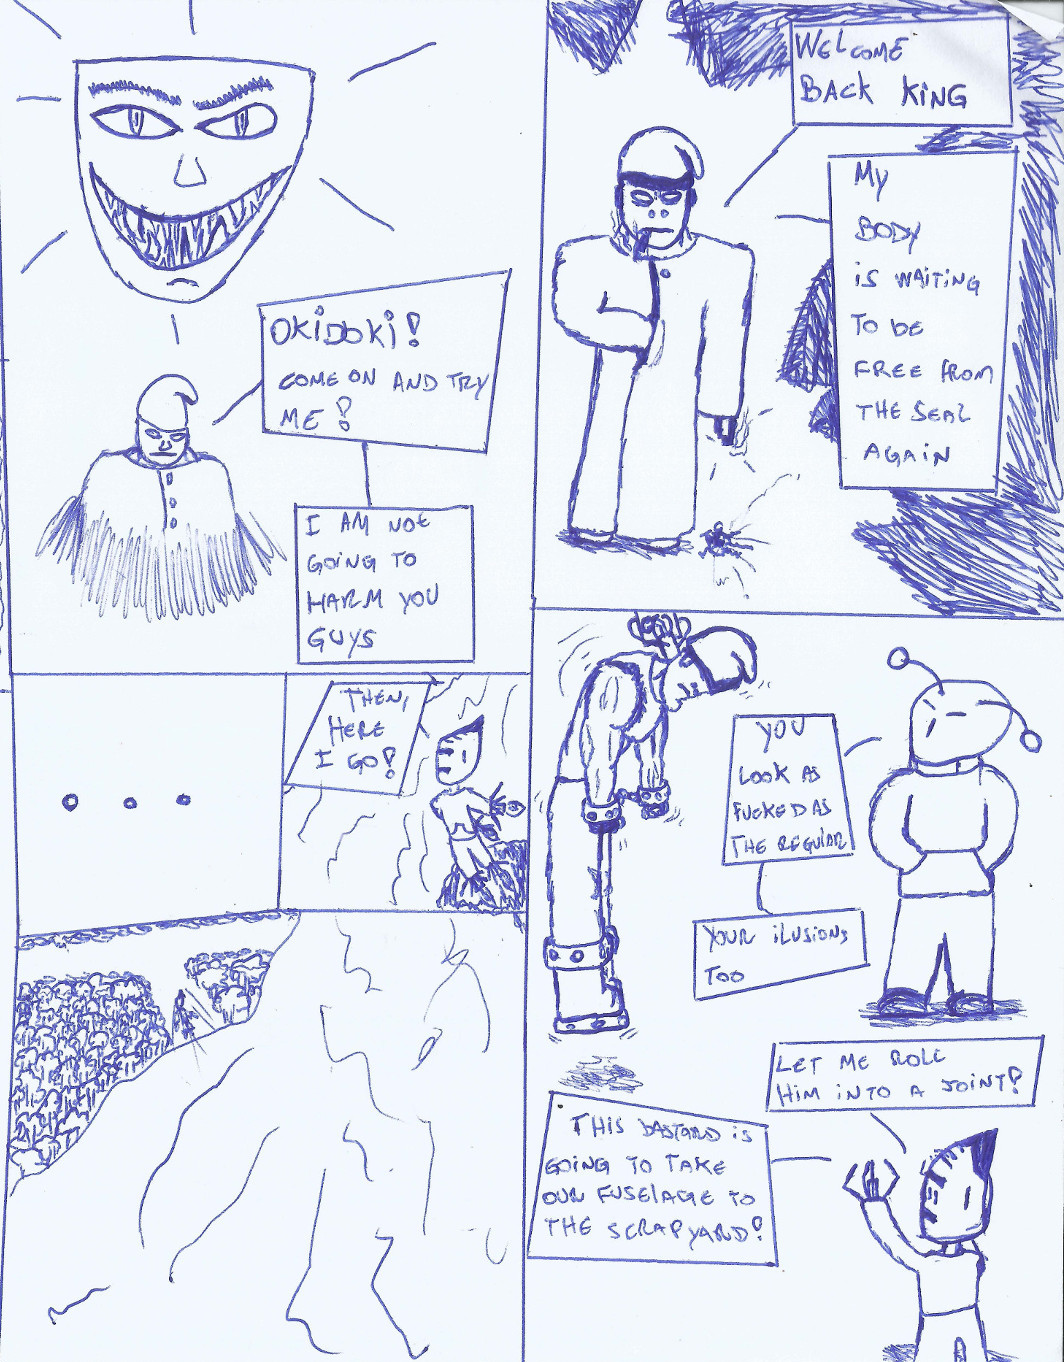 OKIDOKI!
COME ON AND TRY
ME!
I AM NOT
GOING TO
HARM YOU
GUYS
THEN,
HERE
I GO!
WELCOME
BACK KING
MY
BODY
IS WAITING
TO BE
FREE FROM
THE SEAL
AGAIN
YOU
LOOK AS
FUCKED AS
THE REGULAR
YOUR ILUSIONS
TOO
LET ME ROLL
HIM INTO A JOINT!
THIS BASTARD IS
GOING TO TAKE
OUR FUSELAGE TO
THE SCRAPYARD!